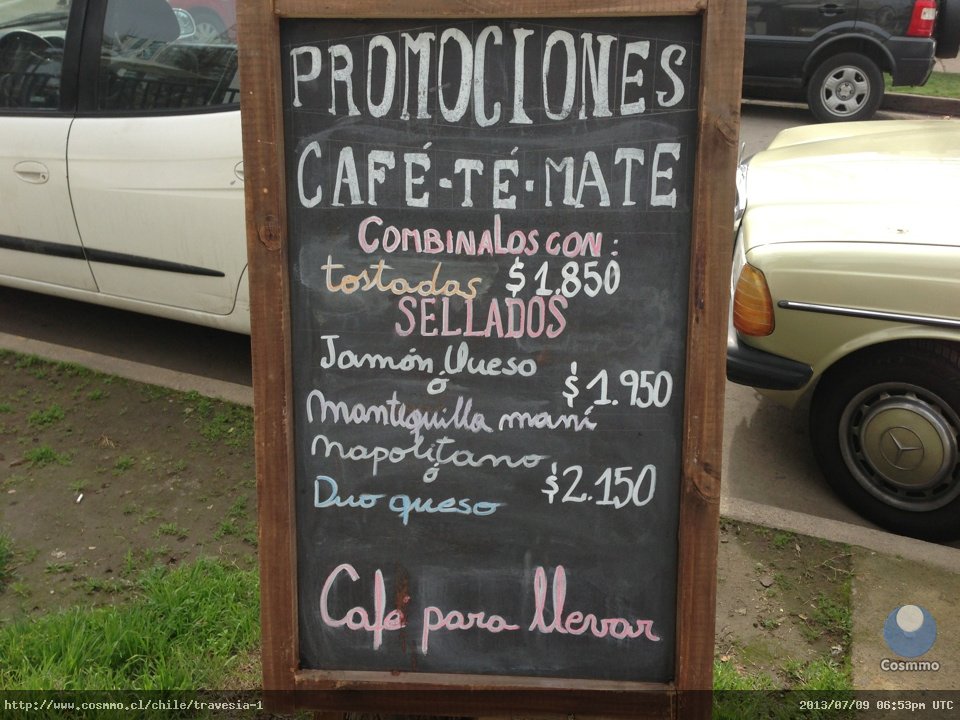 PROMOCIONES
CAFÉ-TÉ-MATE
COMBINALOS CON:
tostadas $1.850
SELLADOS
Jamón Queso
ó $1.950
Mantequilla maní
Napolitano
ó $2.150
Duo queso
Café para llevar
Cosmmo
http://www.cosmmo.cl/chile/travesia-1 2013/07/09 06:53pm UTC